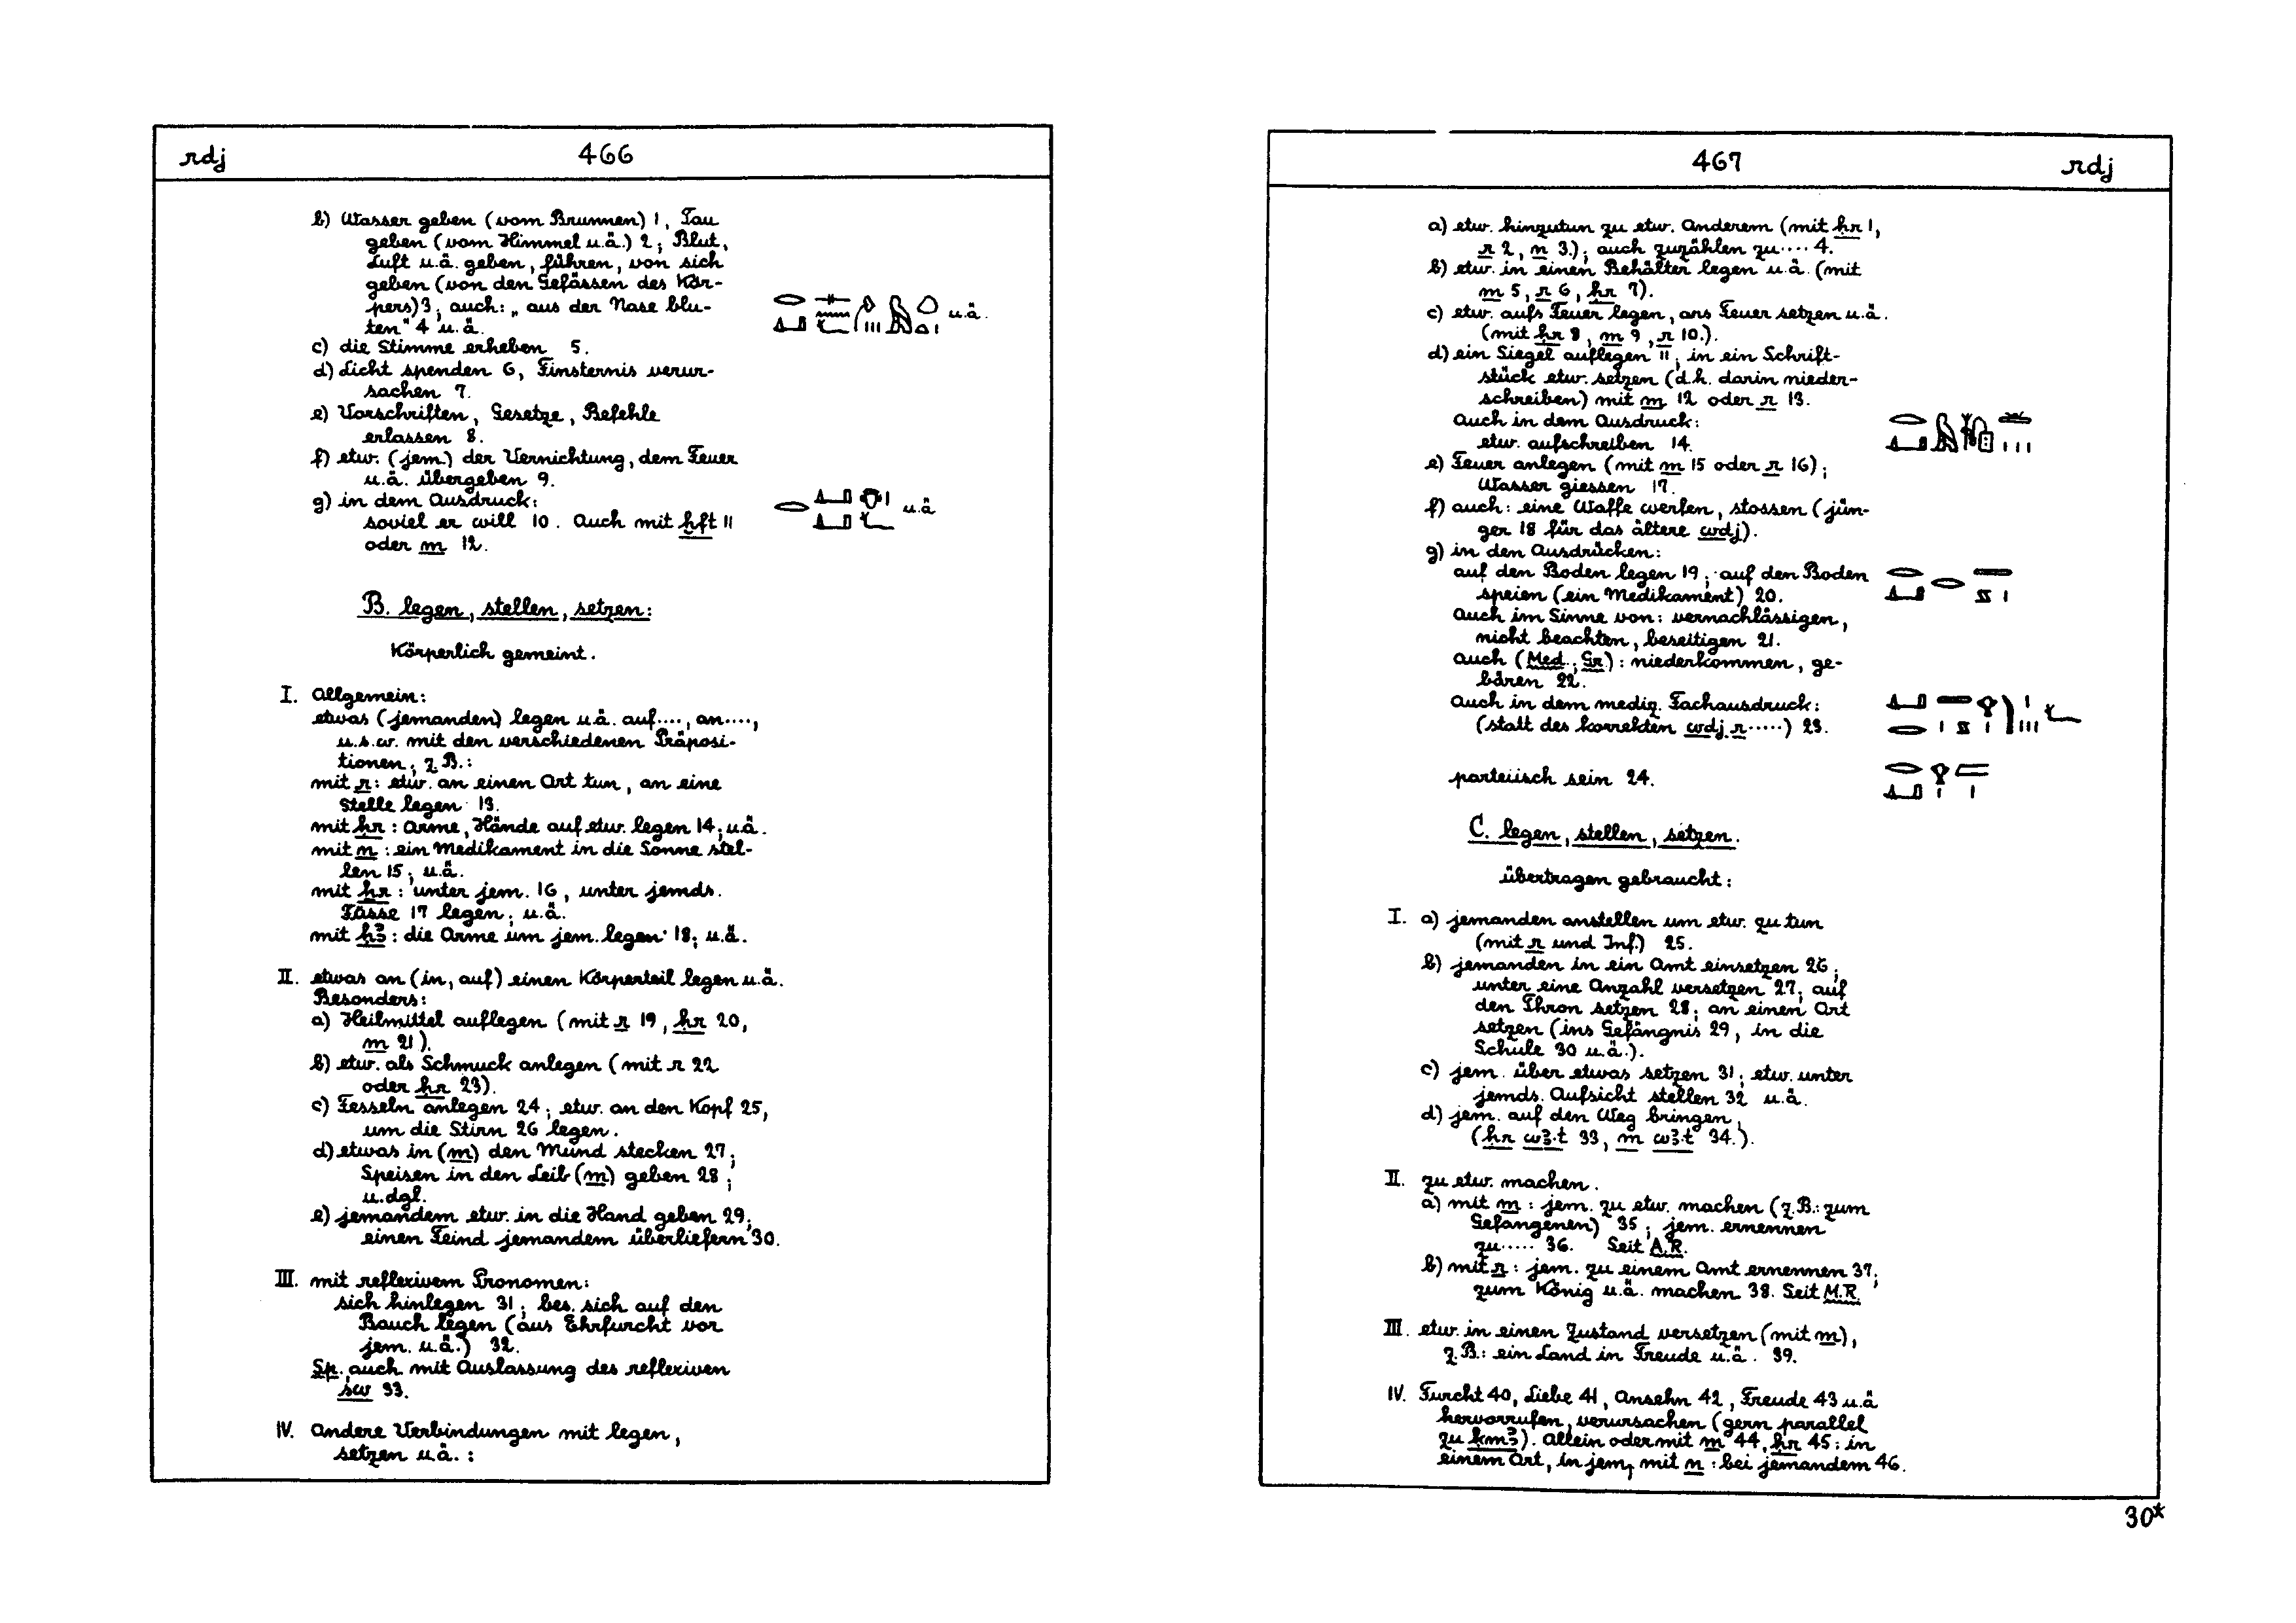 rdj 466
b) Wasser geben (vom Brunnen) 1, Tau
geben (vom Himmel u.ä.) 2; Blut,
Luft u.ä. geben, führen, von sich
geben (von den Gefässen des Kör-
pers) 3; auch: „aus der Nase blu-
ten" 4 u.ä. u.ä.
c) die Stimme erheben 5.
d) Licht spenden 6, Finsternis verur-
sachen 7.
e) Vorschriften, Gesetze, Befehle
erlassen 8.
f) etw. (jem.) der Vernichtung, dem Feuer
u.ä. übergeben 9.
g) in dem Ausdruck: u.ä
soviel er will 10. Auch mit ḫft 11
oder m 12.
B. legen, stellen, setzen:
Körperlich gemeint.
I. Allgemein:
etwas (jemanden) legen u.ä. auf...., an....,
u.s.w. mit den verschiedenen Präposi-
tionen; z.B.:
mit r: etw. an einen Ort tun, an eine
Stelle legen 13.
mit ḥr: Arme, Hände auf etw. legen 14; u.ä.
mit n: ein Medikament in die Sonne stel-
len 15; u.ä.
mit ẖr: unter jem. 16, unter jemds.
Füsse 17 legen; u.ä.
mit ḥꜣ: die Arme um jem. legen 18; u.ä.
II. etwas an (in, auf) einen Körperteil legen u.ä.
Besonders:
a) Heilmittel auflegen (mit r 19, ḥr 20,
m 21).
b) etw. als Schmuck anlegen (mit r 22
oder ḥr 23).
c) Fesseln anlegen 24; etw. an den Kopf 25,
um die Stirn 26 legen.
d) etwas in (m) den Mund stecken 27;
Speisen in den Leib (m) geben 28;
u.dgl.
e) jemandem etw. in die Hand geben 29;
einen Feind jemandem überliefern 30.
III. mit reflexivem Pronomen:
sich hinlegen 31; bes. sich auf den
Bauch legen (aus Ehrfurcht vor
jem. u.ä.) 32.
Sp. auch mit Auslassung des reflexiven
sw 33.
IV. Andere Verbindungen mit legen,
setzen u.ä.:
467 rdj
a) etw. hinzutun zu etw. Anderem (mit ḥr 1,
r 2, n 3.); auch zuzählen zu.... 4.
b) etw. in einen Behälter legen u.ä. (mit
m 5, r 6, ḥr 7).
c) etw. aufs Feuer legen, ans Feuer setzen u.ä.
(mit ḥr 8, m 9, r 10.).
d) ein Siegel auflegen 11; in ein Schrift-
stück etw. setzen (d.h. darin nieder-
schreiben) mit m 12 oder r 13.
Auch in dem Ausdruck:
etw. aufschreiben 14.
e) Feuer anlegen (mit m 15 oder r 16);
Wasser giessen 17.
f) auch: eine Waffe werfen, stossen (jün-
ger 18 für das ältere wdj).
g) in den Ausdrücken:
auf den Boden legen 19; auf den Boden
speien (ein Medikament) 20.
Auch im Sinne von: vernachlässigen,
nicht beachten, beseitigen 21.
auch (Med., Gr.): niederkommen, ge-
bären 22.
Auch in dem mediz. Fachausdruck:
(statt des korrekten wdj r.....) 23.
parteiisch sein 24.
C. legen, stellen, setzen.
übertragen gebraucht:
I. a) jemanden anstellen um etw. zu tun
(mit r und Inf.) 25.
b) jemanden in ein Amt einsetzen 26;
unter eine Anzahl versetzen 27; auf
den Thron setzen 28; an einen Ort
setzen (ins Gefängnis 29, in die
Schule 30 u.ä.).
c) jem. über etwas setzen 31; etw. unter
jemds. Aufsicht stellen 32 u.ä.
d) jem. auf den Weg bringen,
(ḥr wꜣ.t 33, m wꜣ.t 34.).
II. zu etw. machen.
a) mit m: jem. zu etw. machen (z.B.: zum
Gefangenen) 35; jem. ernennen
zu..... 36. Seit A.R.
b) mit r: jem. zu einem Amt ernennen 37;
zum König u.ä. machen 38. Seit M.R.
III. etw. in einen Zustand versetzen (mit m),
z.B.: ein Land in Freude u.ä. 39.
IV. Furcht 40, Liebe 41, Ansehn 42, Freude 43 u.ä
hervorrufen, verursachen (gern parallel
zu ḳmꜣ). Allein oder mit m 44, ḥr 45: in
einem Ort, in jem, mit n: bei jemandem 46.
30*